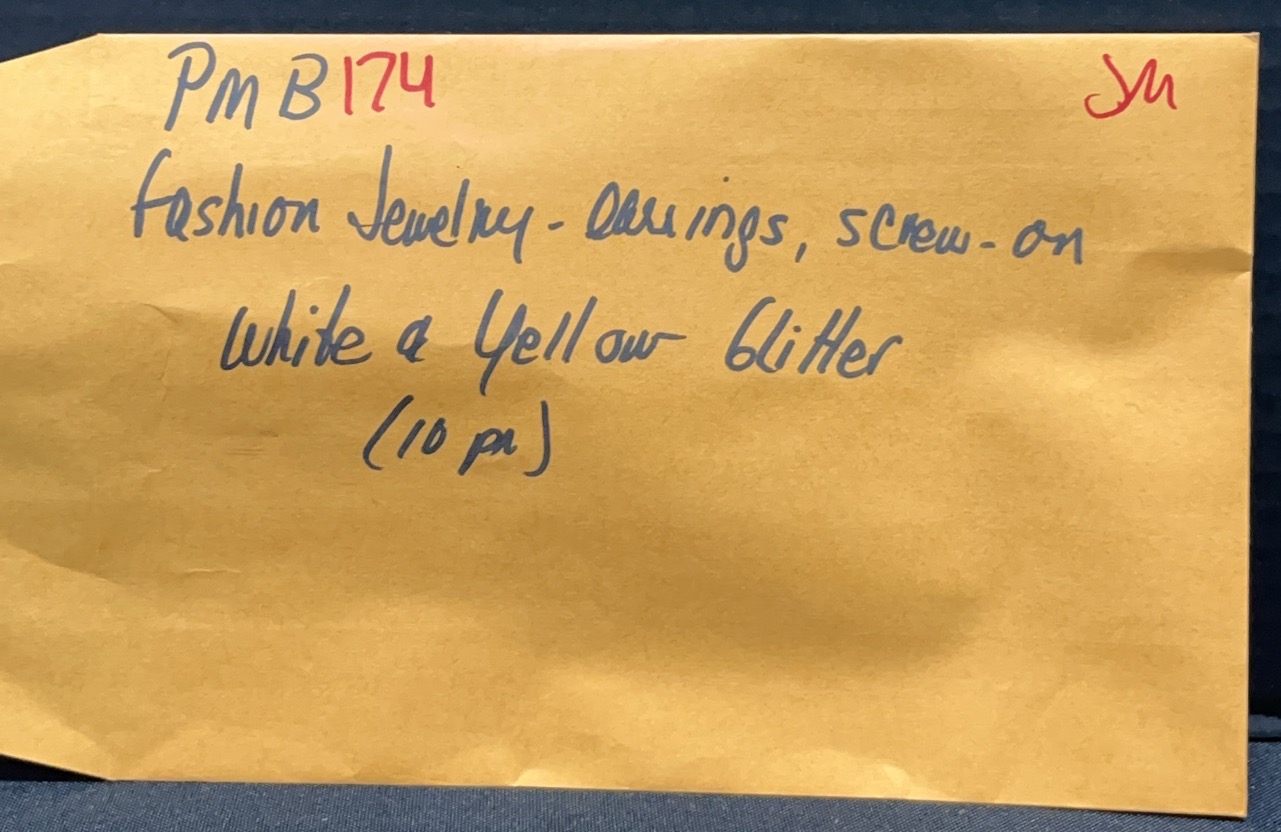 PM B174 JM
Fashion Jewelry - Earrings, screw-on
White & Yellow Glitter
(10 pr)